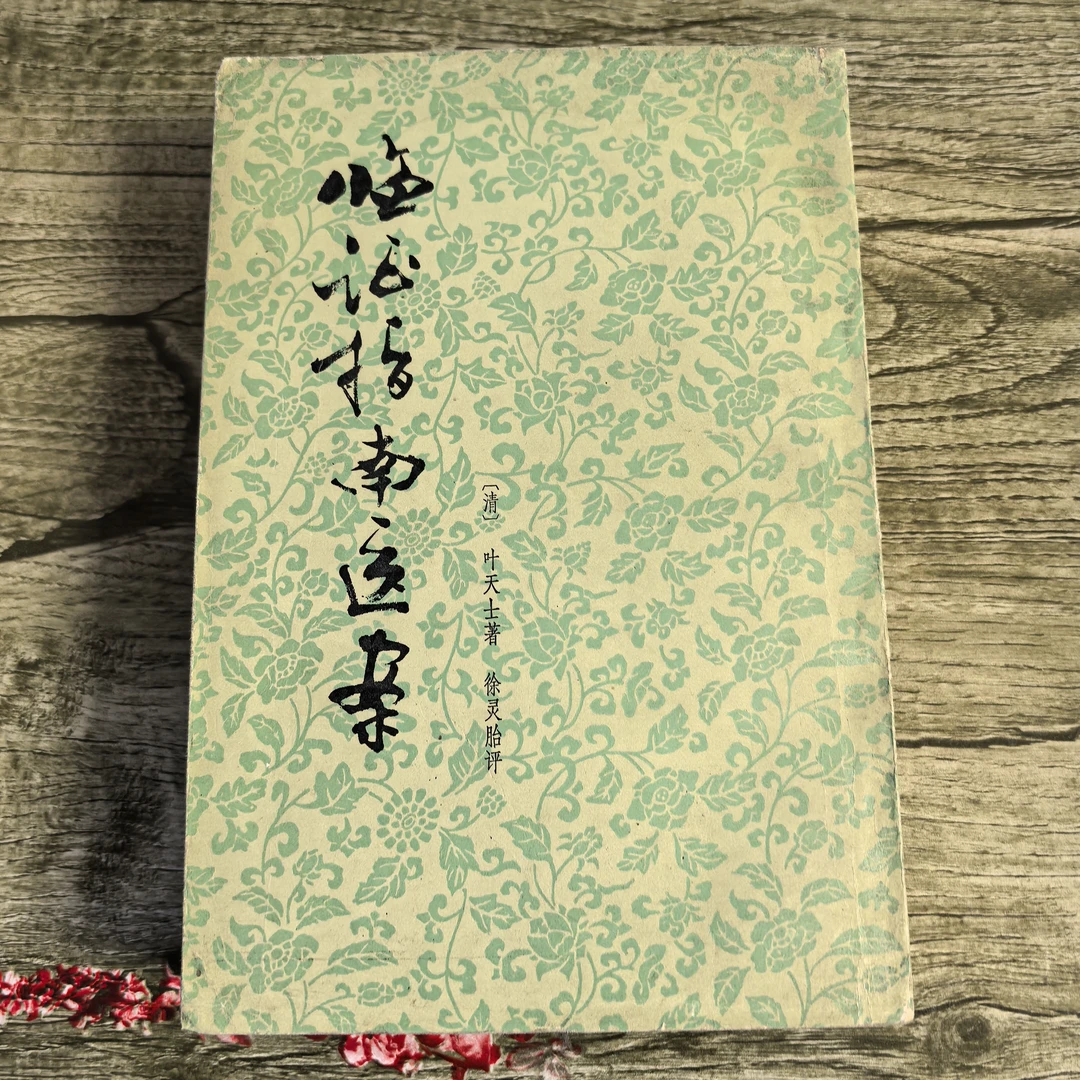 临证指南医案
〔清〕 叶天士著 徐灵胎评